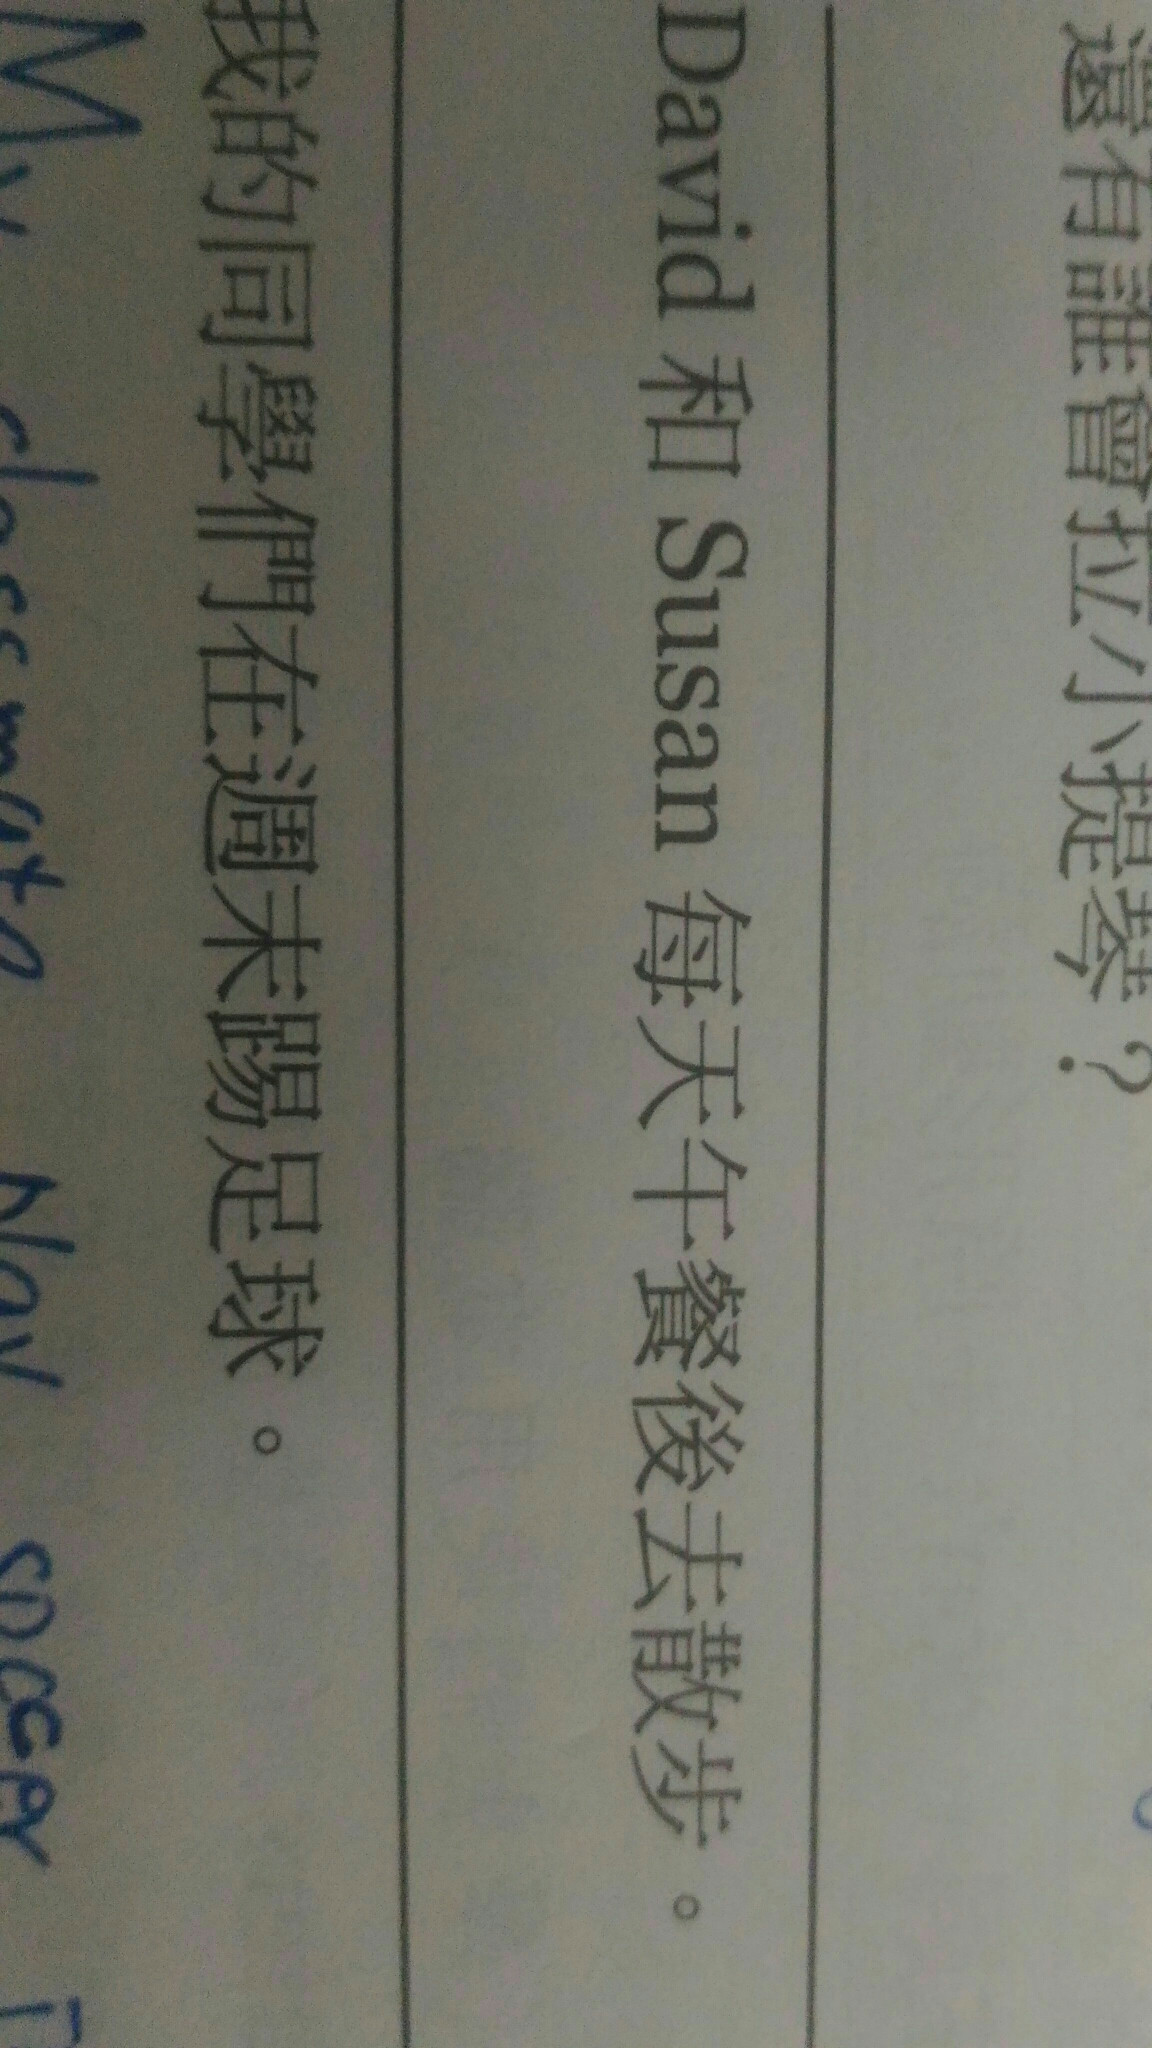 還有誰會拉小提琴？
David 和 Susan 每天午餐後去散步。
我的同學們在週末踢足球。
My classmate soccer